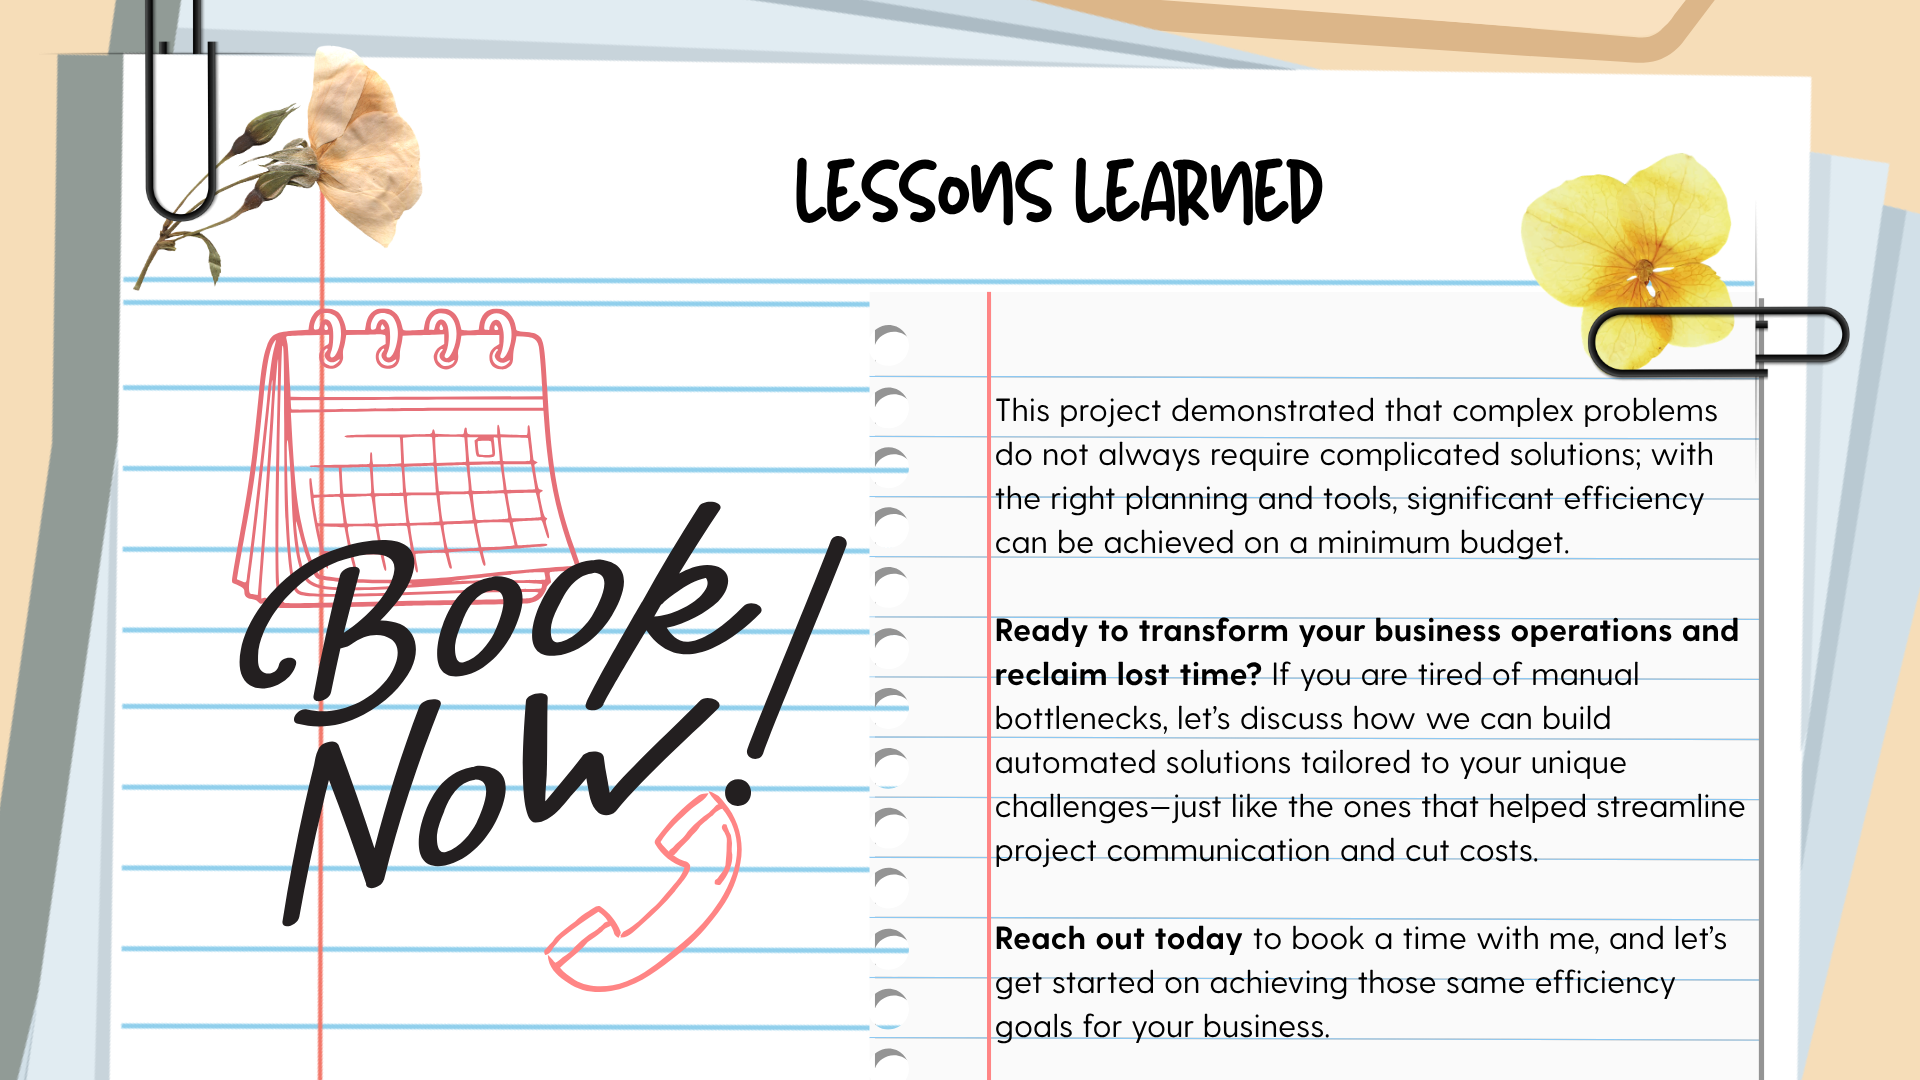 LESSONS LEARNED
Book
Now!
This project demonstrated that complex problems
do not always require complicated solutions; with
the right planning and tools, significant efficiency
can be achieved on a minimum budget.
Ready to transform your business operations and
reclaim lost time? If you are tired of manual
bottlenecks, let’s discuss how we can build
automated solutions tailored to your unique
challenges—just like the ones that helped streamline
project communication and cut costs.
Reach out today to book a time with me, and let’s
get started on achieving those same efficiency
goals for your business.